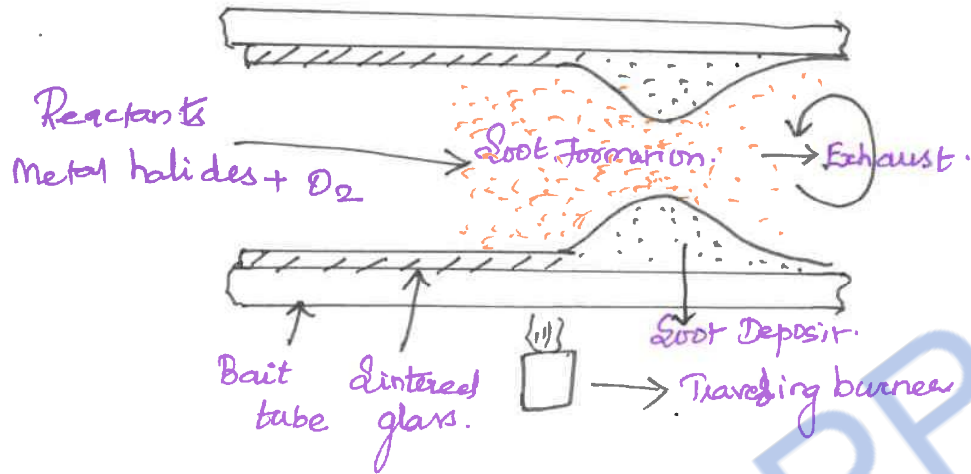 Reactants
Metal halides + O2
Soot Formation.
Exhaust.
Soot Deposit.
Bait
tube
Sintered
glass.
Traveling burner
PP